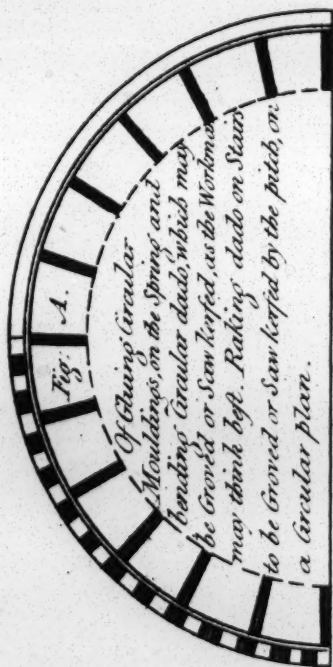 Fig: A.
Of Gluing Circular
Mouldings, on the Spring and
bending Circular dado, which may
be Groved or Saw kerfed, as the Workman
may think best. Raking dado on Stairs
to be Groved or Saw kerfed by the pitch, on
a Circular plan.